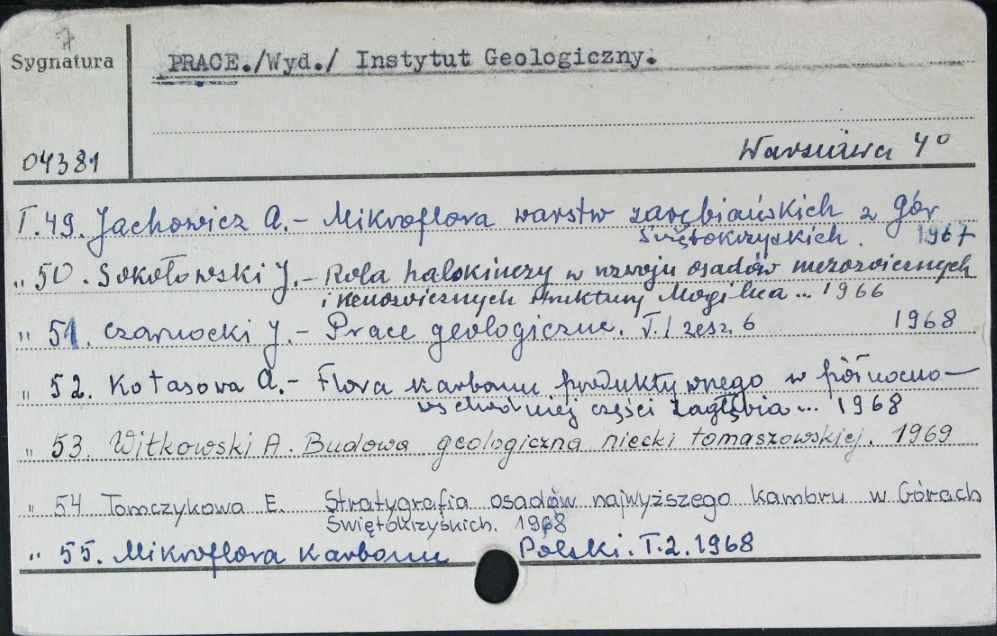 7
Sygnatura
PRACE./Wyd./ Instytut Geologiczny.
Warszawa 4°
04381
T.49. Jachowicz A.- Mikroflora warstw zarębiańskich z Gór
Świętokrzyskich. 1967
" 50. Sokołowski J.- Rola halokinezy w rozwoju osadów mezozoicznych
i kenozoicznych struktury Mogilna ... 1966
" 51. Czarnocki J.- Prace geologiczne. T.1 zesz. 6 1968
" 52. Kotasowa A.- Flora karbonu produktywnego w północno-
wschodniej części Zagłębia ... 1968
" 53. Witkowski A. Budowa geologiczna niecki tomaszowskiej. 1969
" 54 Tomczykowa E. Stratygrafia osadów najwyższego kambru w Górach
Świętokrzyskich. 1968
" 55. Mikroflora karbonu Polski. T.2. 1968